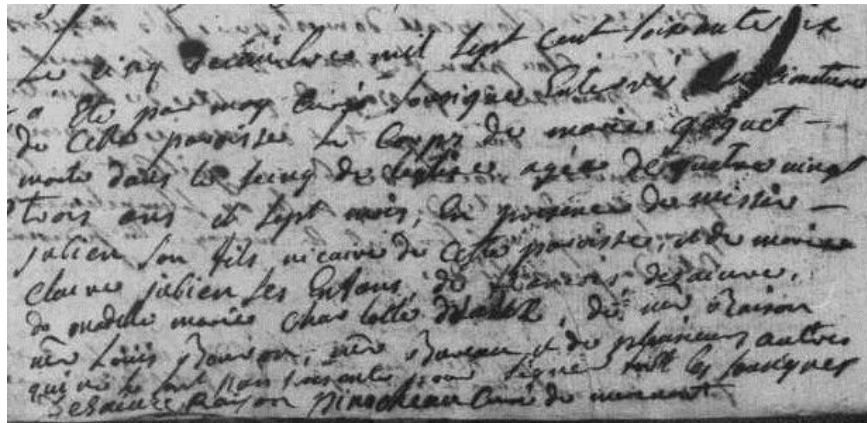 Le cinq decembre mil sept cent soixante
a été par moy curé soussigné enterré cimetiere
de cette paroisse le corps de marie goguet
morte dans le seing de l'eglise agée de quatre vingt
trois ans et sept mois, en presence de messire
julien son fils vicaire de cette paroisse, et de marie
claire julien ses enfans, de francois desaivre,
de madelle marie charlotte de mr Raison
mr Louis Raison, mr et de plusieurs autres
qui ne se sont pour signer les soussignes
Desaivre Raison pinocheau curé de